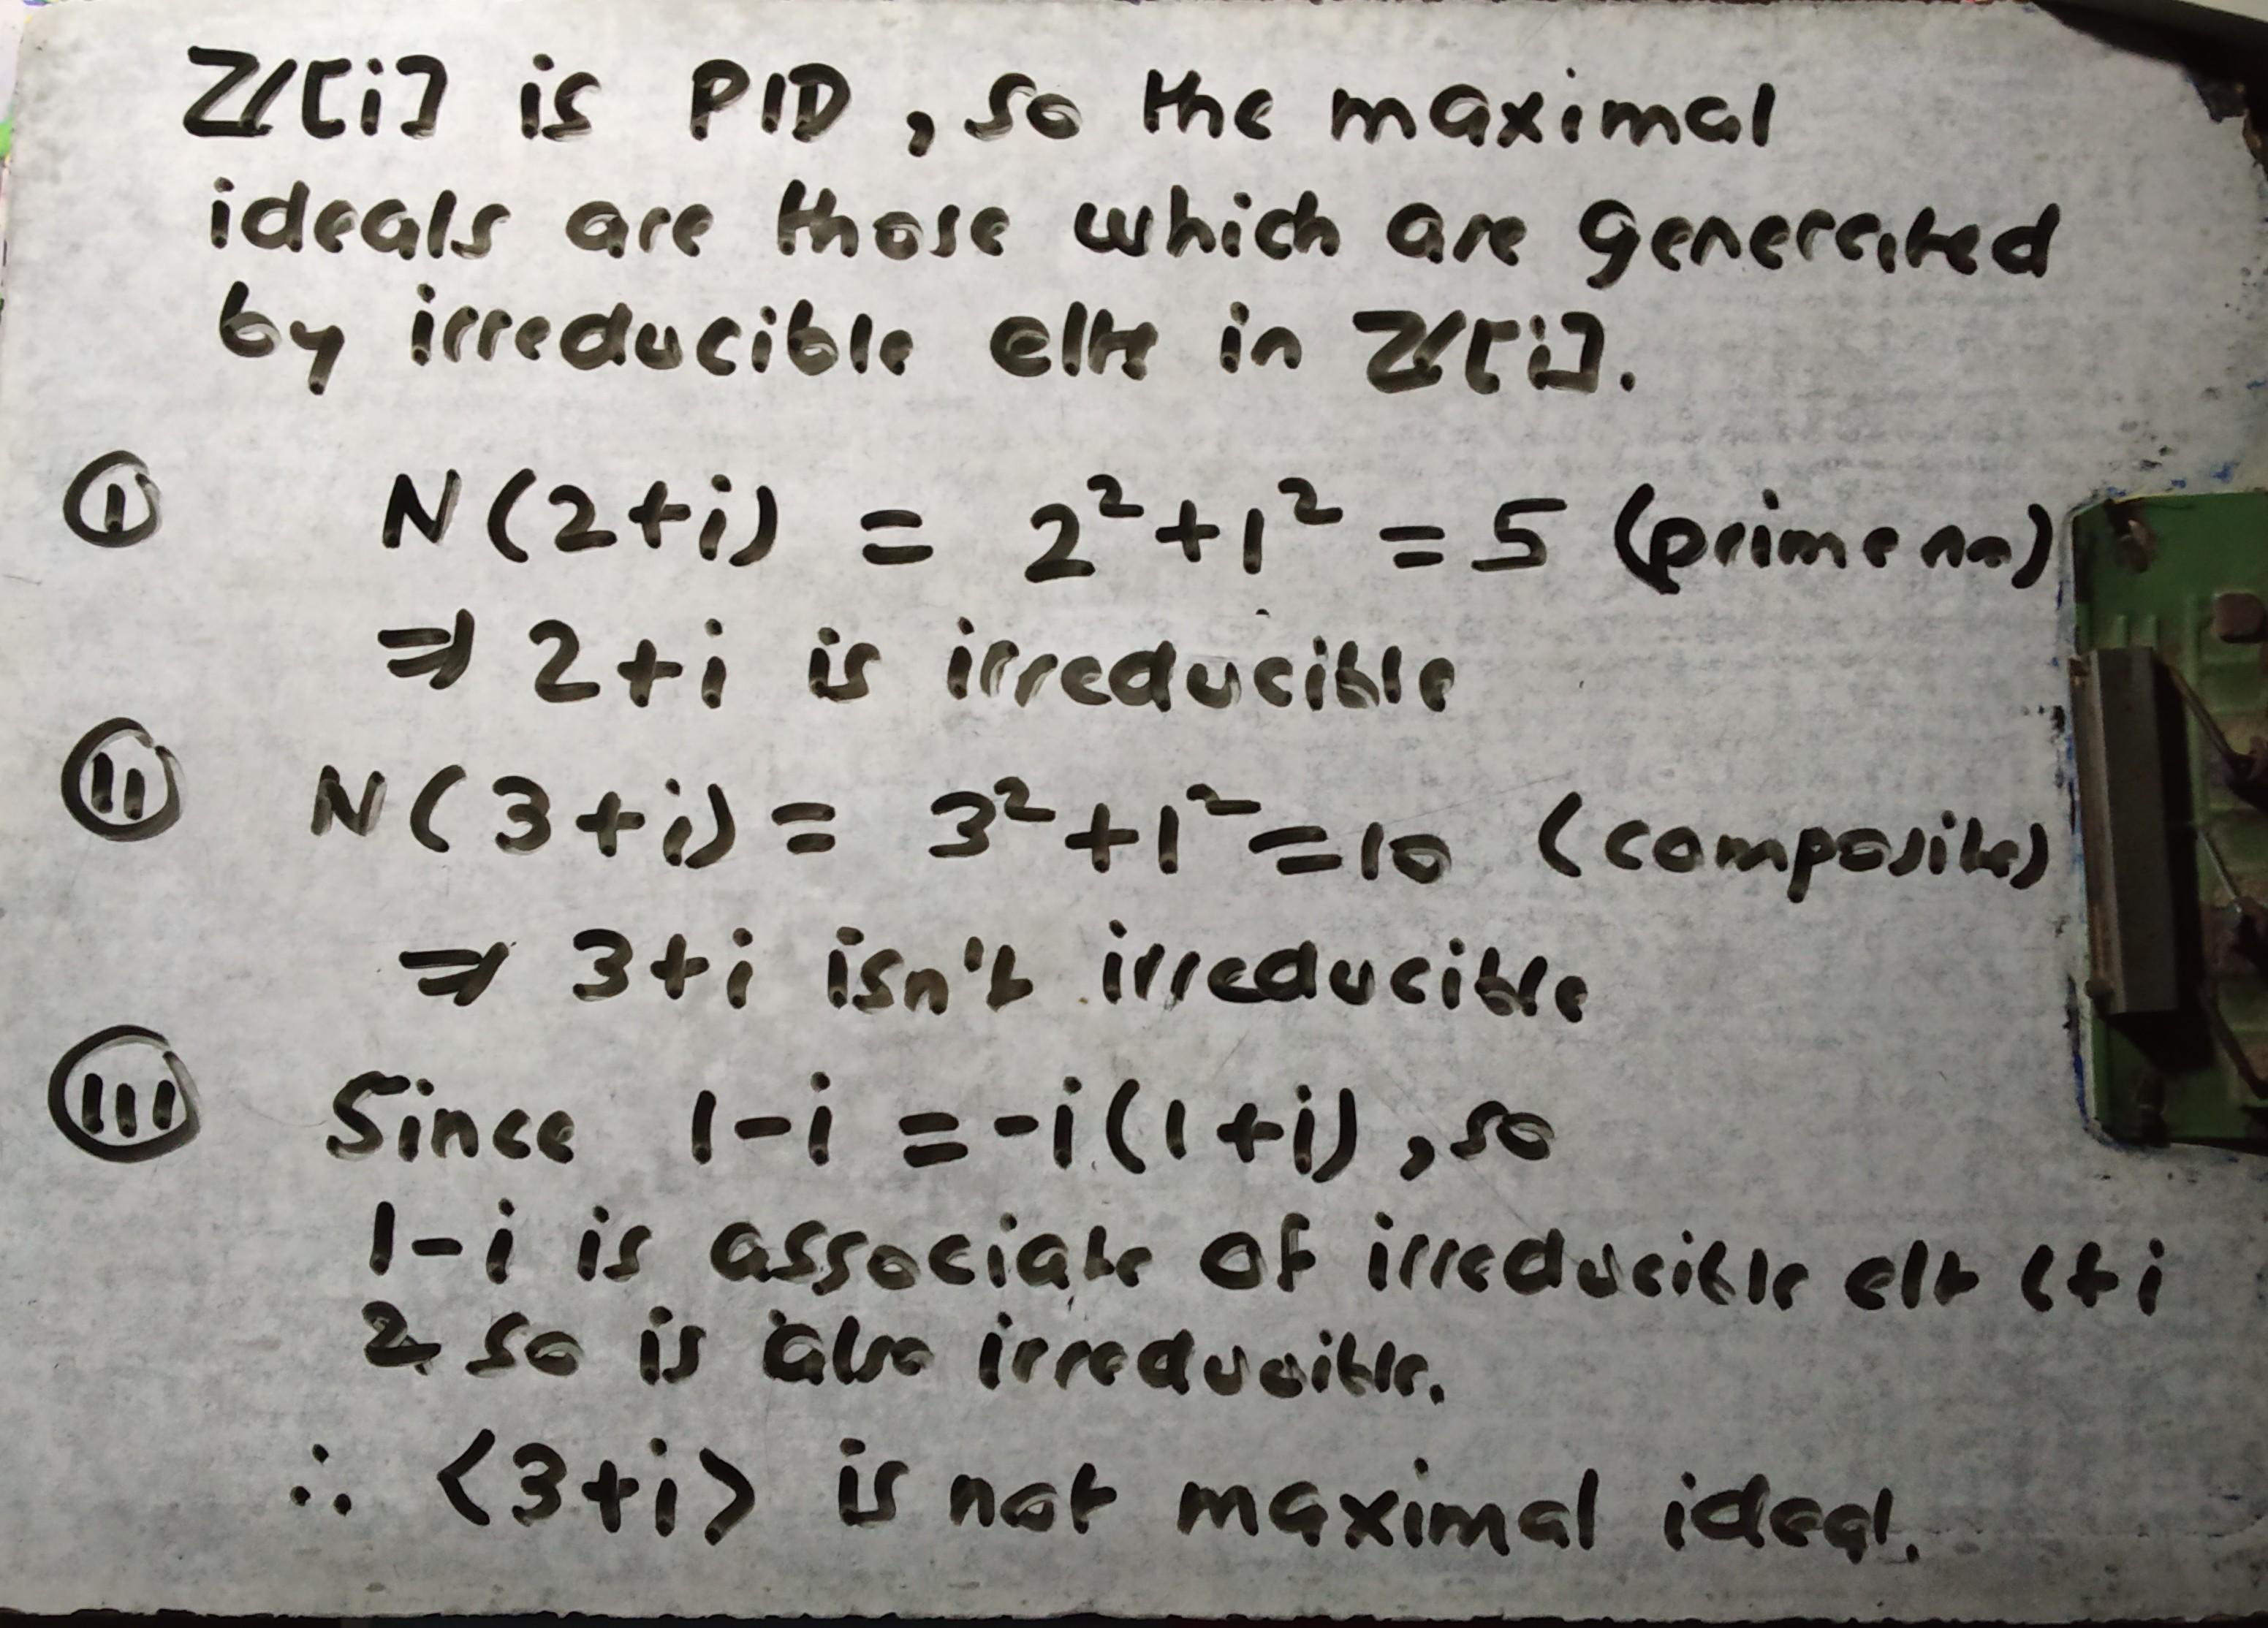 ℤ[i] is PID, so the maximal
ideals are those which are generated
by irreducible elts in ℤ[i].
Ⓘ N(2+i) = 2²+1² = 5 (prime no)
⇒ 2+i is irreducible
(II) N(3+i) = 3²+1² = 10 (composite)
⇒ 3+i isn't irreducible
(III) Since 1-i = -i(1+i), so
1-i is associate of irreducible elt 1+i
& so is also irreducible.
∴ <3+i> is not maximal ideal.